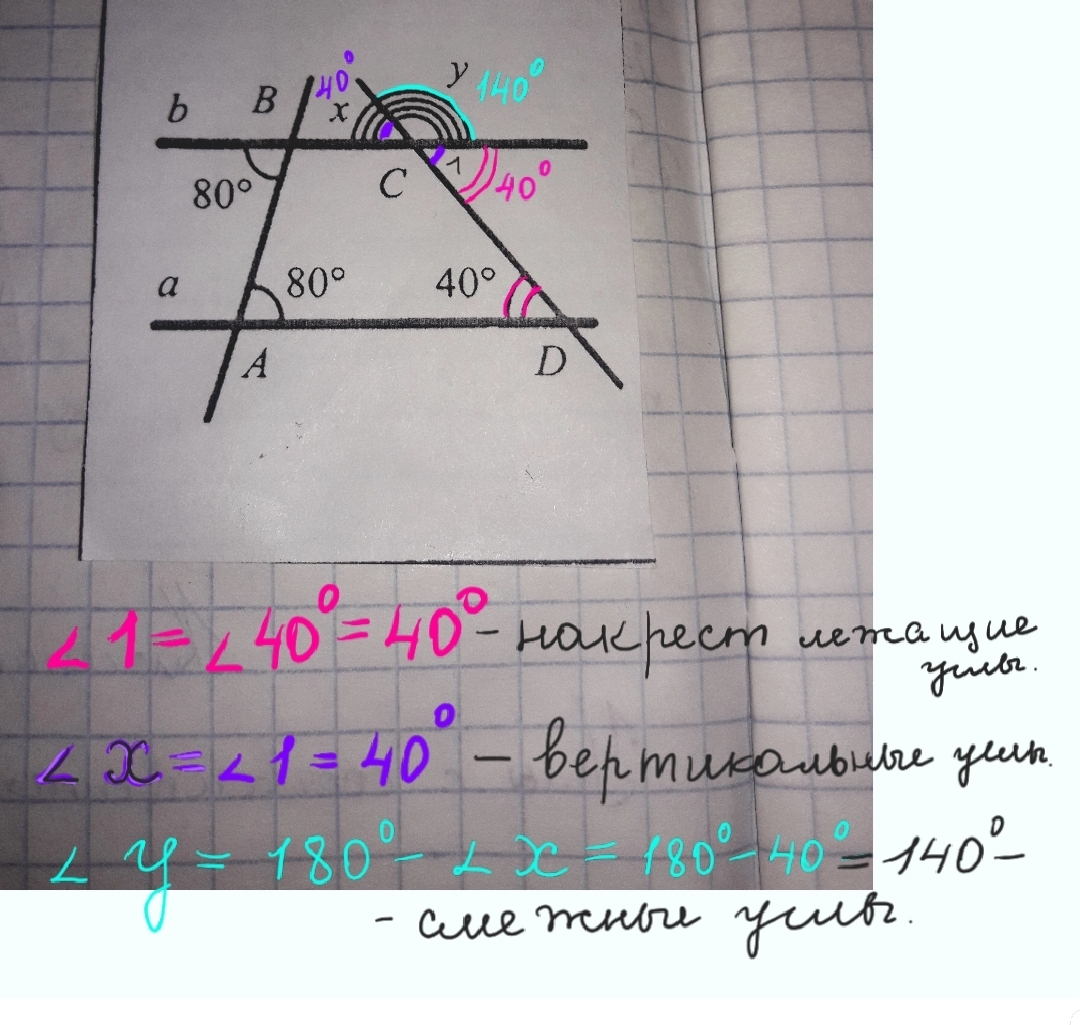 40°
y 140°
b B x
80° C 1 40°
a 80° 40°
A D
∠1 = ∠40° = 40° - накрест лежащие
углы.
∠x = ∠1 = 40° - вертикальные углы.
∠y = 180° - ∠x = 180° - 40° = 140° -
- смежные углы.